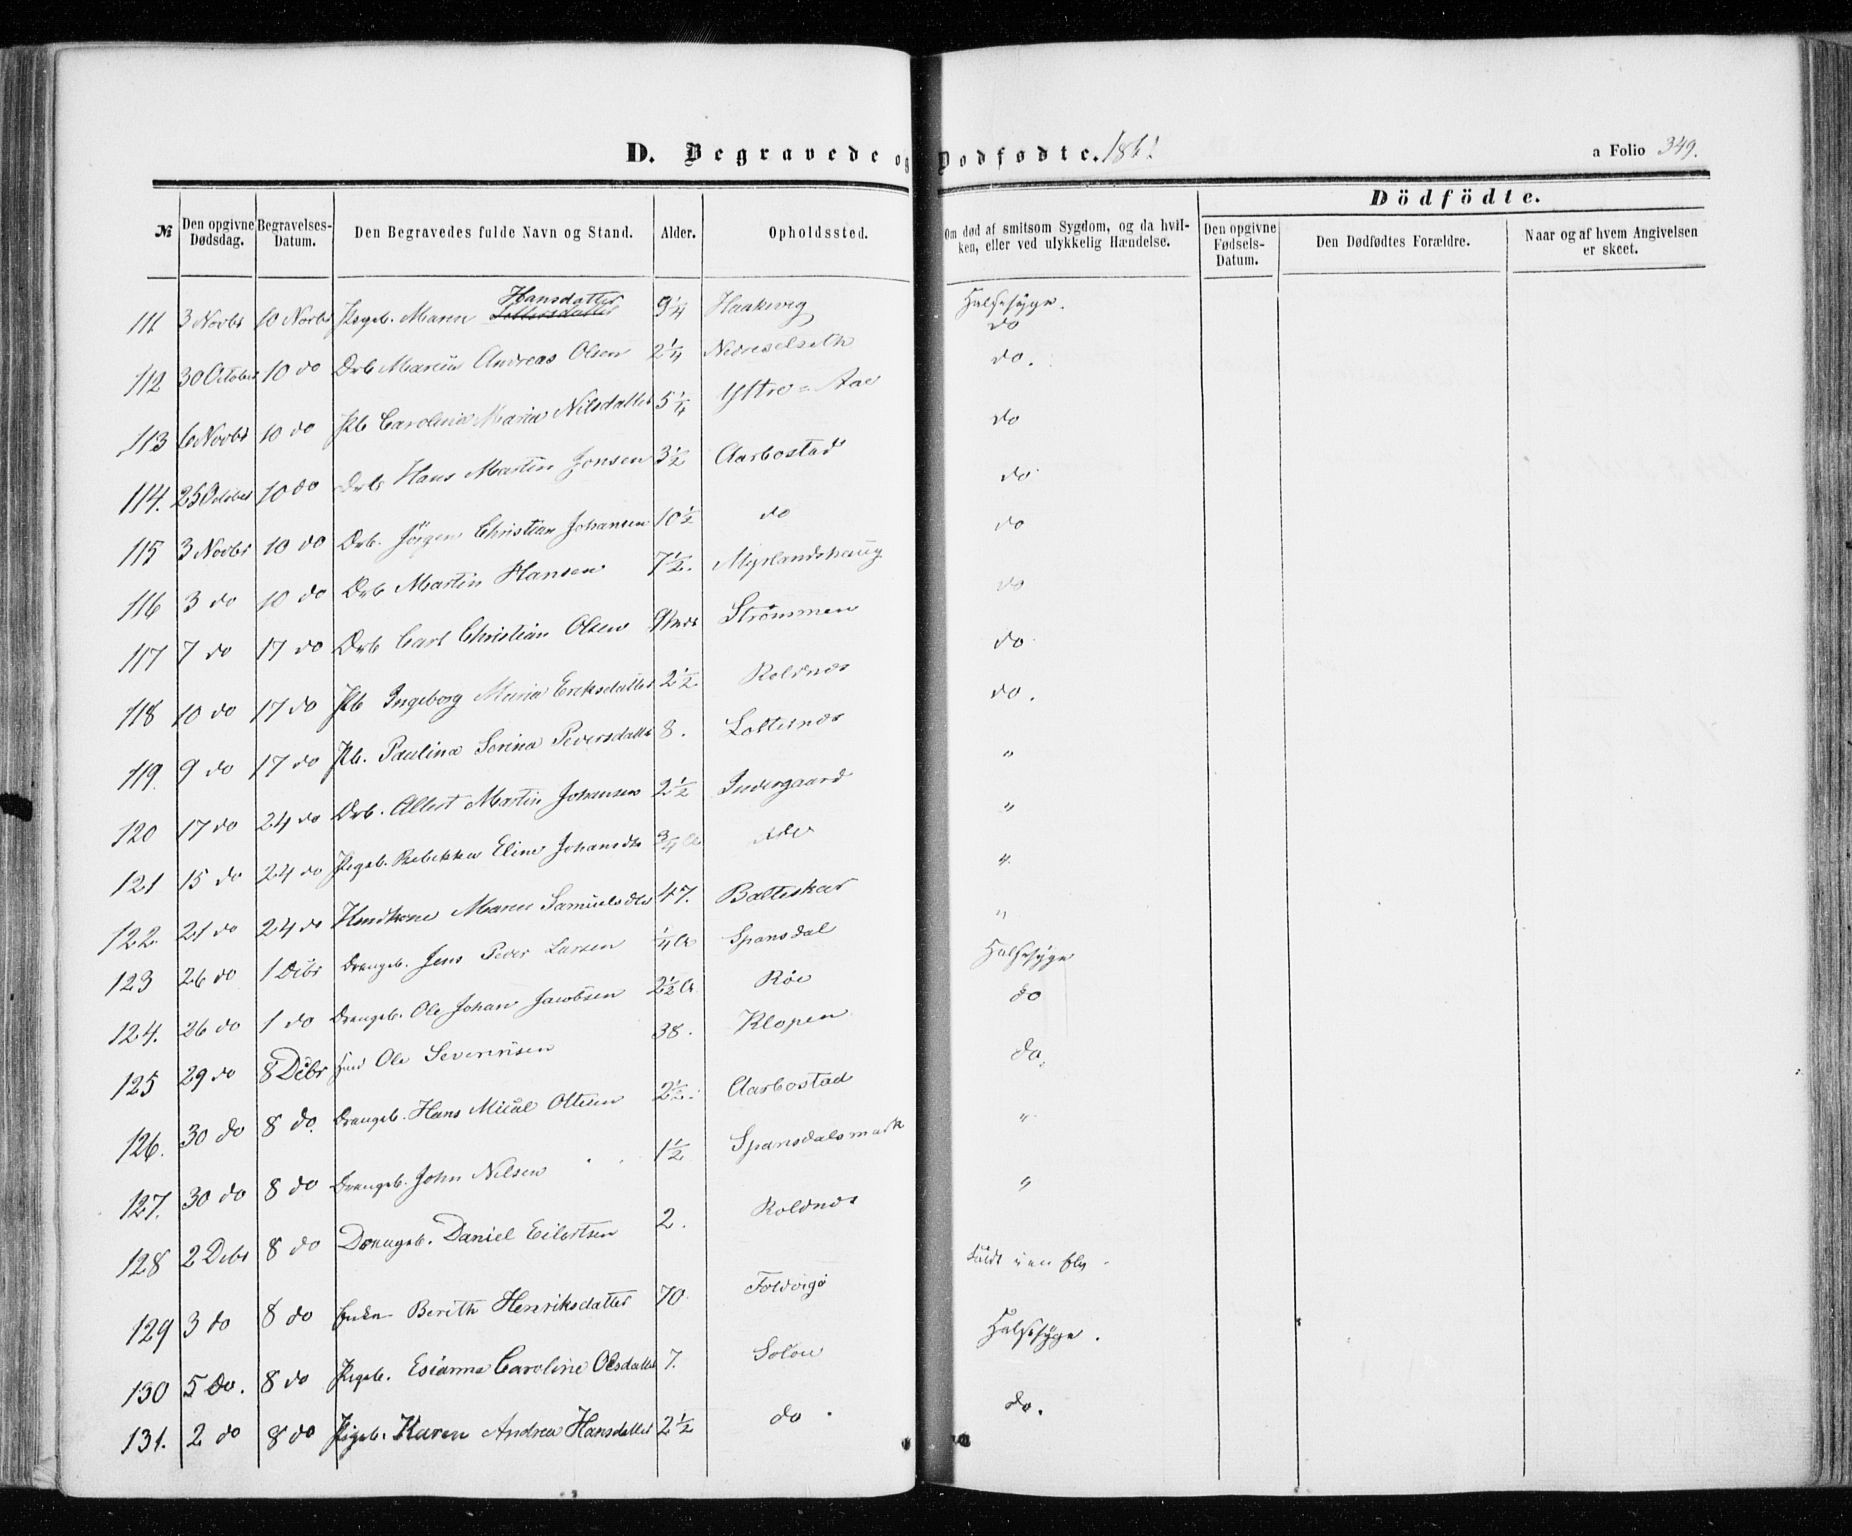 D. Begravede og Dødfødte. 186
a Folio 349.
Dödfödte.
№ Den opgivne Dødsdag. Begravelses-Datum. Den Begravedes fulde Navn og Stand. Alder. Opholdssted. Om død af smitsom Sygdom, og da hvilken, eller ved ulykkelig Hændelse. Den opgivne Fødsels-Datum. Den Dødfødtes Forældre. Naar og af hvem Angivelsen er skeet.
Hansdatter
111. 3 Novbr 10 Novbr Pigeb. Maren 9 1/4 Haakvig Halssyge.
do
112 30 October 10 do Drb Marcus Andreas Olsen 2 1/4 Nedreselseth do.
113 6 Novbr 10 do Pb Carolina Maria Nilsdatter 5 1/4 Yttre=Aae do
114. 25 October 10 do Drb Hans Martin Jonsen 3 1/2 Aarbostad do
115 3 Novbr 10 do Drb. Jörgen Christian Johansen 10 1/2 do do
116 3 do 10 do Drb Martin Hansen 7 1/2. Myrlandshaug do
117 7 do 17 do Drb Carl Christian Olsen Strømmen do
118 10 do 17 do Pb Ingeborg Maria Eriksdatter 2 1/2 Roldnes do.
119. 9 do 17 do Pb. Paulina Serina Pedersdatter 8. Lottenes "
120 17 do 24 do Drb. Albert Martin Johansen 2 1/2 Indergaard "
121 15 do 24 do Pigeb. Rebekka Eline Johansdtr 3/4 A "
122. 21 do 24 do Huuskone Maren Samuelsdtr 47. Balteskar "
123 26 do 1 Dcbr Drengeb. Jens Peder Larsen 1/4 A Spansdal Halssyge
124. 26 do 1 do Drengeb. Ole Johan Jacobsen 2 1/2 A Røe do
125 29 do 8 Dcbr Ole Severinsen 38. Klopen do.
126. 30 do 8 do. Drengeb. Hans Mical Ottesen 2 1/2. Aarbostad "
127. 30 do 8 do Drengeb. John Nilsen 1 1/2 Spansdalsmark "
128 2 Dcbr 8 do Drengeb. Daniel Eilertsen 2. Roldnes
129 3 do 8 do Enke Berith Henriksdatter 70. Foldvig
130 5 do. 8 do Pigeb. Esianna Caroline Olsdatter 7. Soløu Halssyge.
131. 2 do 8 do Pigeb. Karen Andrea Hansdatter 2 1/2 do. do.